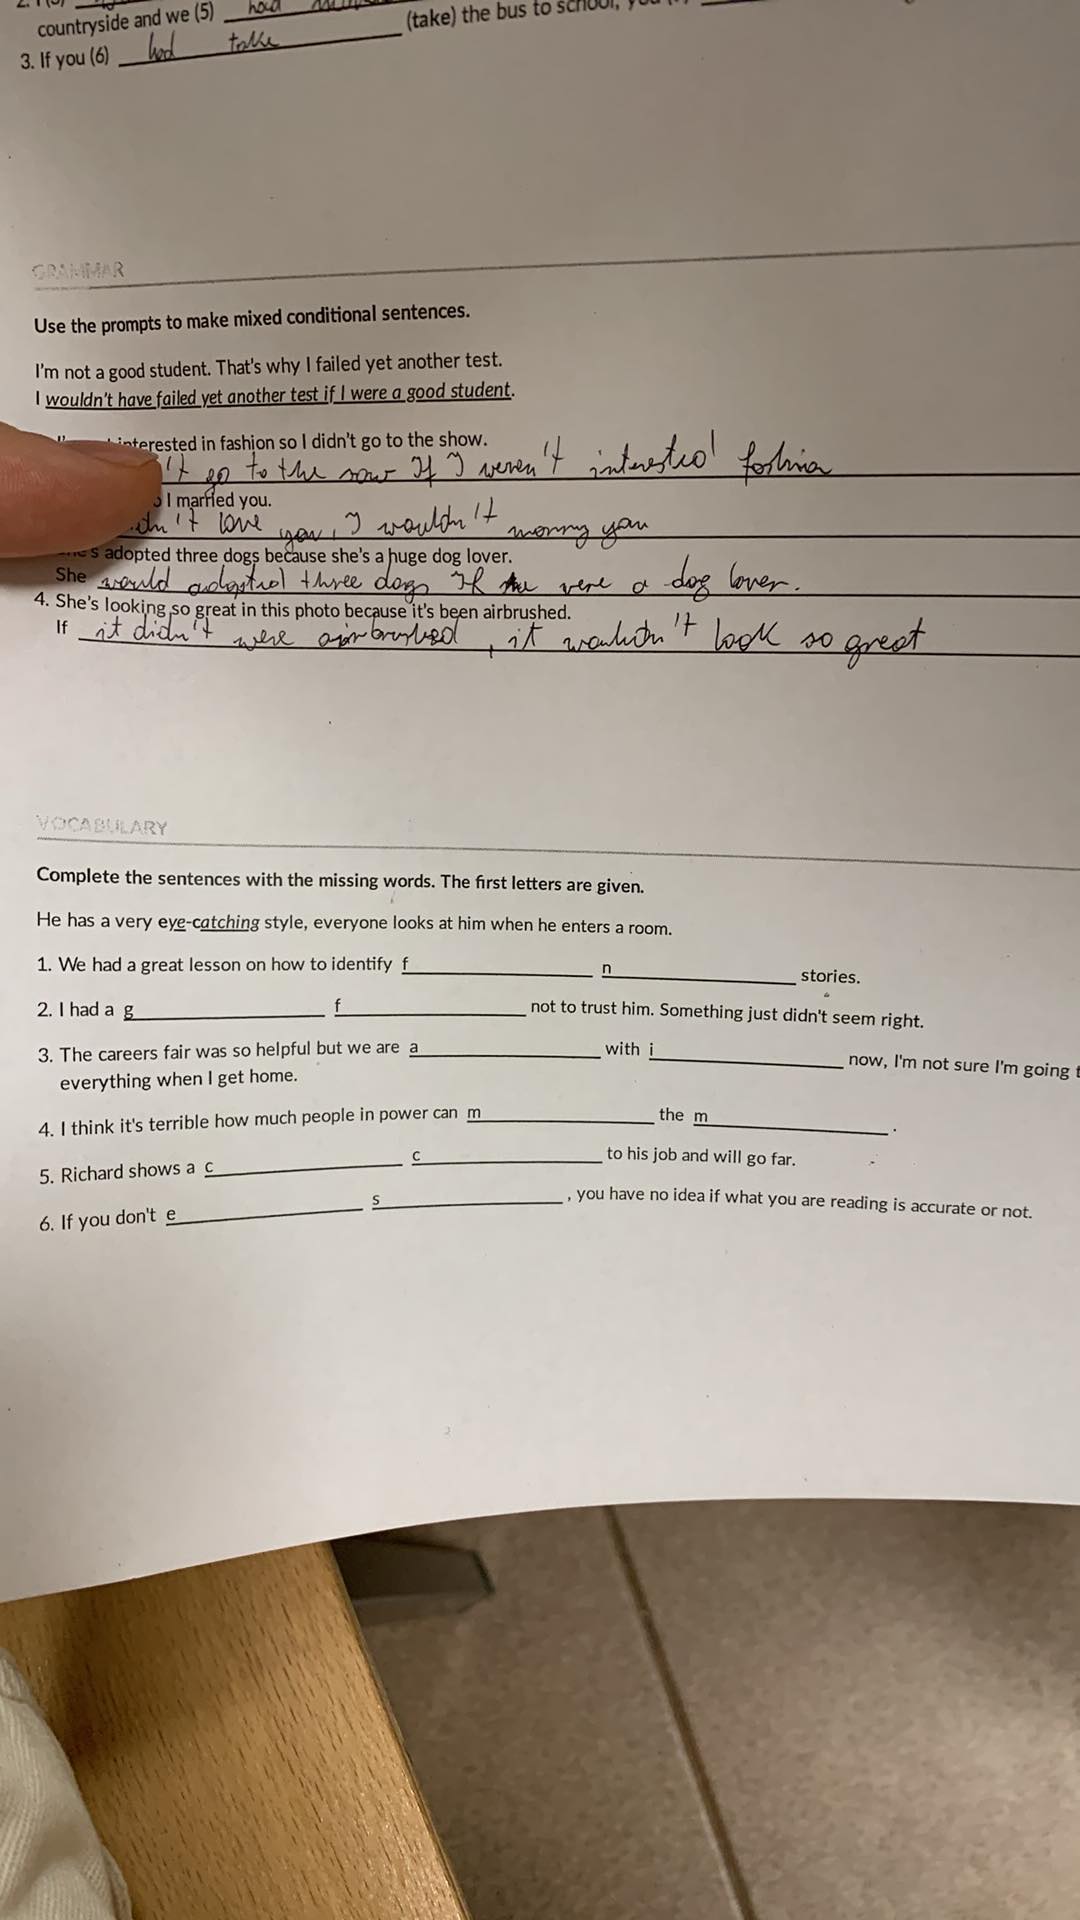 countryside and we (5) had
(take) the bus to school,
3. If you (6) had take
GRAMMAR
Use the prompts to make mixed conditional sentences.
I'm not a good student. That's why I failed yet another test.
I wouldn't have failed yet another test if I were a good student.
interested in fashion so I didn't go to the show.
't go to the show If I weren't interested
I married you.
't love you, I wouldn't marry you
's adopted three dogs because she's a huge dog lover.
She would adopted three dogs If she were a dog lover.
4. She's looking so great in this photo because it's been airbrushed.
If it didn't were airbrushed, it wouldn't look so great
VOCABULARY
Complete the sentences with the missing words. The first letters are given.
He has a very eye-catching style, everyone looks at him when he enters a room.
1. We had a great lesson on how to identify f n stories.
2. I had a g f not to trust him. Something just didn't seem right.
3. The careers fair was so helpful but we are a with i now, I'm not sure I'm going
everything when I get home.
4. I think it's terrible how much people in power can m the m .
5. Richard shows a c c to his job and will go far.
6. If you don't e s , you have no idea if what you are reading is accurate or not.